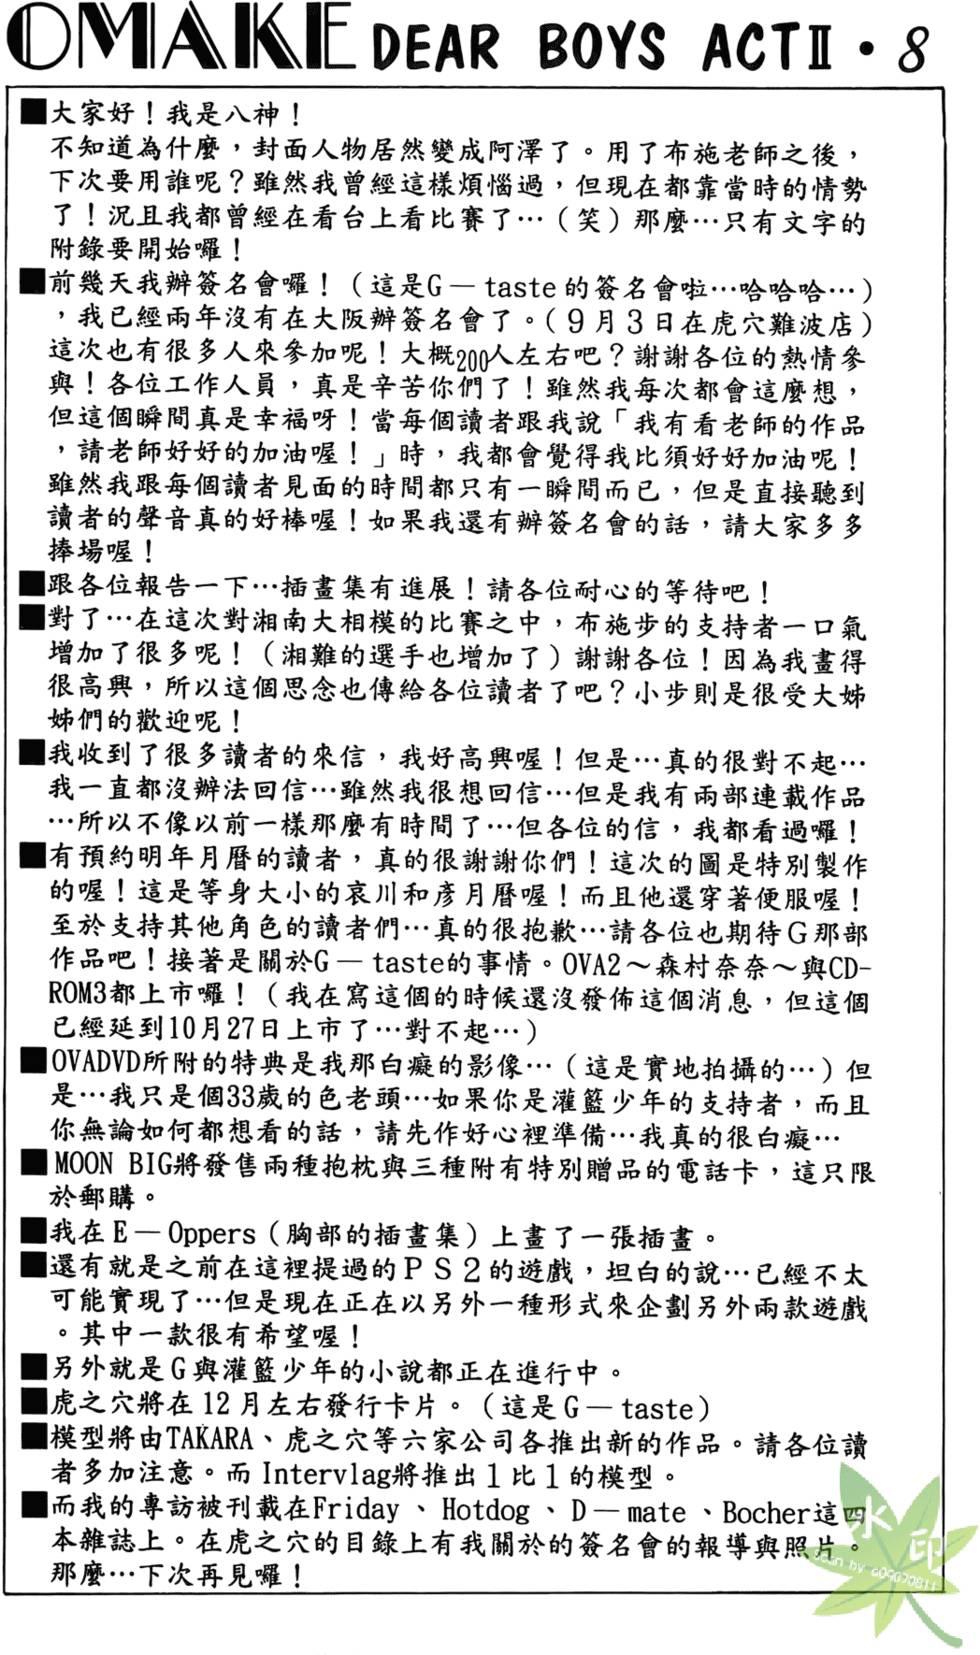 OMAKE DEAR BOYS ACTⅡ・8
■大家好！我是八神！
不知道為什麼，封面人物居然變成阿澤了。用了布施老師之後，
下次要用誰呢？雖然我曾經這樣煩惱過，但現在都靠當時的情勢
了！況且我都曾經在看台上看比賽了…（笑）那麼…只有文字的
附錄要開始囉！
■前幾天我辦簽名會囉！（這是G－taste的簽名會啦…哈哈哈…）
，我已經兩年沒有在大阪辦簽名會了。（9月3日在虎穴難波店）
這次也有很多人來參加呢！大概200人左右吧？謝謝各位的熱情參
與！各位工作人員，真是辛苦你們了！雖然我每次都會這麼想，
但這個瞬間真是幸福呀！當每個讀者跟我說「我有看老師的作品
，請老師好好的加油喔！」時，我都會覺得我比須好好加油呢！
雖然我跟每個讀者見面的時間都只有一瞬間而已，但是直接聽到
讀者的聲音真的好棒喔！如果我還有辦簽名會的話，請大家多多
捧場喔！
■跟各位報告一下…插畫集有進展！請各位耐心的等待吧！
■對了…在這次對湘南大相模的比賽之中，布施步的支持者一口氣
增加了很多呢！（湘難的選手也增加了）謝謝各位！因為我畫得
很高興，所以這個思念也傳給各位讀者了吧？小步則是很受大姊
姊們的歡迎呢！
■我收到了很多讀者的來信，我好高興喔！但是…真的很對不起…
我一直都沒辦法回信…雖然我很想回信…但是我有兩部連載作品
…所以不像以前一樣那麼有時間了…但各位的信，我都看過囉！
■有預約明年月曆的讀者，真的很謝謝你們！這次的圖是特別製作
的喔！這是等身大小的哀川和彥月曆喔！而且他還穿著便服喔！
至於支持其他角色的讀者們…真的很抱歉…請各位也期待G那部
作品吧！接著是關於G－taste的事情。OVA2～森村奈奈～與CD-
ROM3都上市囉！（我在寫這個的時候還沒發佈這個消息，但這個
已經延到10月27日上市了…對不起…）
■OVADVD所附的特典是我那白癡的影像…（這是實地拍攝的…）但
是…我只是個33歲的色老頭…如果你是灌籃少年的支持者，而且
你無論如何都想看的話，請先作好心裡準備…我真的很白癡…
■MOON BIG將發售兩種抱枕與三種附有特別贈品的電話卡，這只限
於郵購。
■我在E－Oppers（胸部的插畫集）上畫了一張插畫。
■還有就是之前在這裡提過的PS2的遊戲，坦白的說…已經不太
可能實現了…但是現在正在以另外一種形式來企劃另外兩款遊戲
。其中一款很有希望喔！
■另外就是G與灌籃少年的小說都正在進行中。
■虎之穴將在12月左右發行卡片。（這是G－taste）
■模型將由TAKARA、虎之穴等六家公司各推出新的作品。請各位讀
者多加注意。而Intervlag將推出1比1的模型。
■而我的專訪被刊載在Friday、Hotdog、D－mate、Bocher這四
本雜誌上。在虎之穴的目錄上有我關於的簽名會的報導與照片。
那麼…下次再見囉！
水印